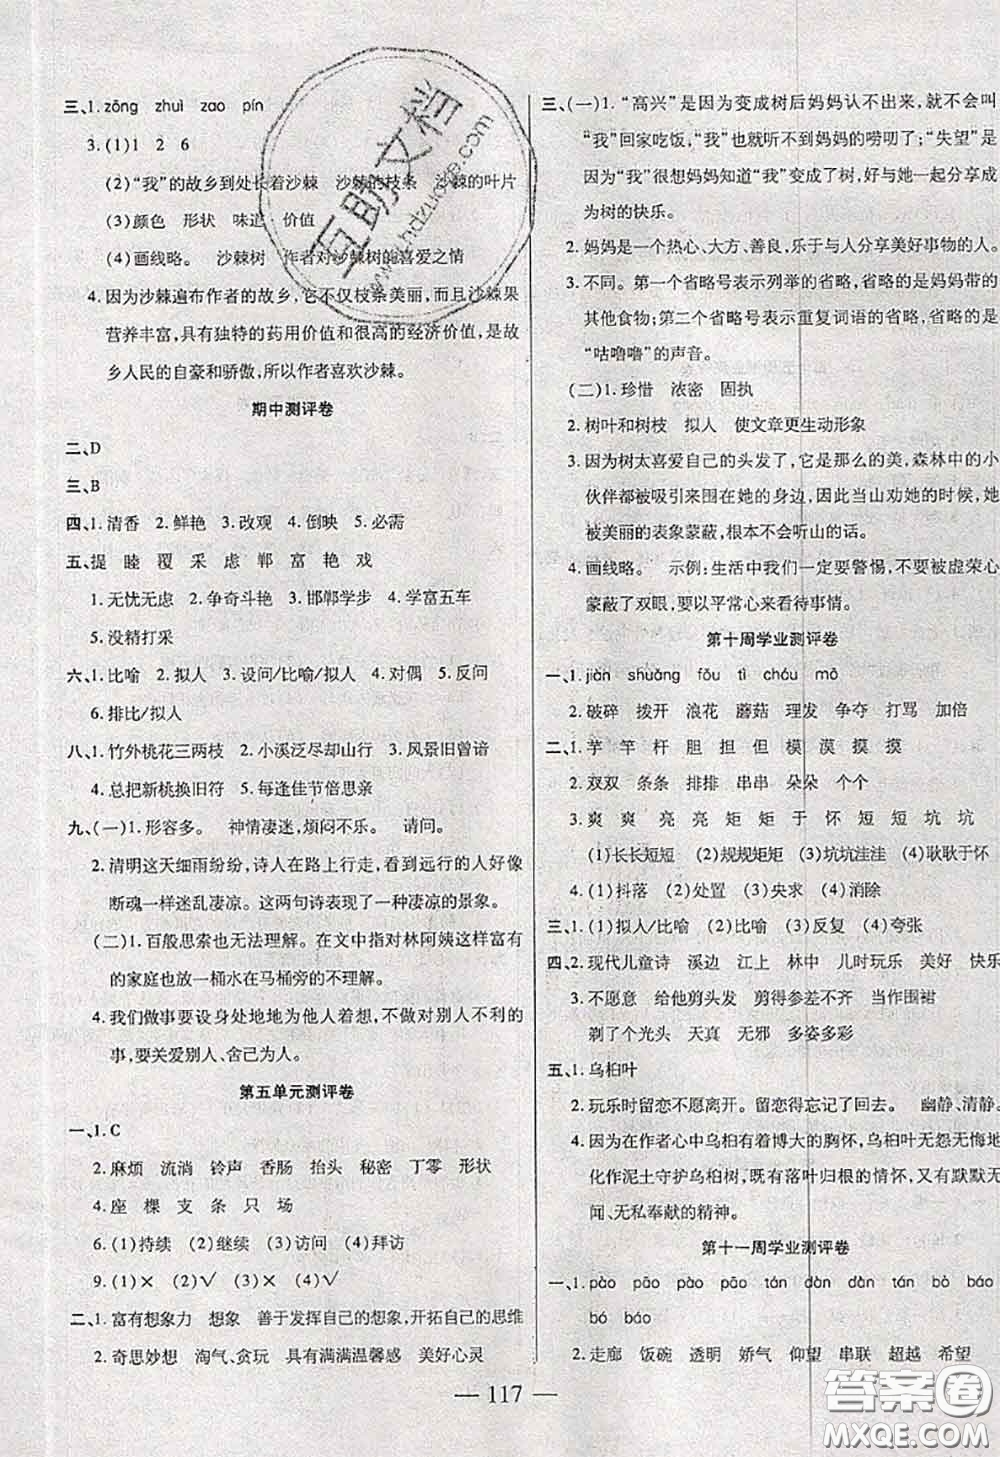 三、1. zōng zhuì zao pín
3. (1)1 2 6
(2)“我”的故乡到处长着沙棘 沙棘的枝条 沙棘的叶片
(3)颜色 形状 味道 价值
(4)画线略。 沙棘树 作者对沙棘树的喜爱之情
4. 因为沙棘遍布作者的故乡,它不仅枝条美丽,而且沙棘果
营养丰富,具有独特的药用价值和很高的经济价值,是故
乡人民的自豪和骄傲,所以作者喜欢沙棘。
期中测评卷
二、D
三、B
四、1. 清香 2. 鲜艳 3. 改观 4. 倒映 5. 必需
五、提 睦 覆 采 虑 郸 富 艳 戏
1. 无忧无虑 2. 争奇斗艳 3. 邯郸学步 4. 学富五车
5. 没精打采
六、1. 比喻 2. 拟人 3. 设问/比喻/拟人 4. 对偶 5. 反问
6. 排比/拟人
八、1. 竹外桃花三两枝 2. 小溪泛尽却山行 3. 风景旧曾谙
4. 总把新桃换旧符 5. 每逢佳节倍思亲
九、(一)1. 形容多。 神情凄迷,烦闷不乐。 请问。
2. 清明这天细雨纷纷,诗人在路上行走,看到远行的人好像
断魂一样迷乱凄凉。这两句诗表现了一种凄凉的景象。
(二)1. 百般思索也无法理解。在文中指对林阿姨这样富有
的家庭也放一桶水在马桶旁的不理解。
4. 我们做事要设身处地地为他人着想,不做对别人不利的
事,要关爱别人、舍己为人。
第五单元测评卷
一、1. C
2. 麻烦 流淌 铃声 香肠 抬头 秘密 丁零 形状
4. 座 棵 支 条 只 场
6. (1)持续 (2)继续 (3)访问 (4)拜访
9. (1)× (2)√ (3)× (4)√
二、1. 富有想象力 想象 善于发挥自己的想象,开拓自己的思维
2. 奇思妙想 淘气、贪玩 具有满满温馨感 美好心灵
三、(一)1. “高兴”是因为变成树后妈妈认不出来,就不会叫
“我”回家吃饭,“我”也就听不到妈妈的唠叨了;“失望”是
因为“我”很想妈妈知道“我”变成了树,好与她一起分享成
为树的快乐。
2. 妈妈是一个热心、大方、善良、乐于与人分享美好事物的人。
3. 不同。第一个省略号表示列举的省略,省略的是妈妈带的
其他食物;第二个省略号表示重复词语的省略,省略的是
“咕噜噜”的声音。
(二)1. 珍惜 浓密 固执
2. 树叶和树枝 拟人 使文章更生动形象
3. 因为树太喜爱自己的头发了,它是那么的美,森林中的小
伙伴都被吸引来围在她的身边,因此当山劝她的时候,她
被美丽的表象蒙蔽,根本不会听山的话。
4. 画线略。 示例:生活中我们一定要警惕,不要被虚荣心
蒙蔽了双眼,要以平常心来看待事情。
第十周学业测评卷
一、1. jiàn shuǎng fǒu tì chóu mǒ
2. 破碎 拨开 浪花 蘑菇 理发 争夺 打骂 加倍
二、1. 芋 竿 杆 胆 担 但 模 漠 摸 摸
2. 双双 条条 排排 串串 朵朵 个个
3. 爽 爽 亮 亮 矩 矩 于 怀 短 短 坑 坑
(1)长长短短 (2)规规矩矩 (3)坑坑洼洼 (4)耿耿于怀
4. (1)抖落 (2)处置 (3)央求 (4)消除
三、1. (1)拟人/比喻 (2)比喻 (3)反复 (4)夸张
四、2. 现代儿童诗 溪边 江上 林中 儿时玩乐 美好 快乐
3. 不愿意 给他剪头发 剪得参差不齐 当作围裙
剃了个光头 天真 无邪 多姿多彩
五、1. 乌桕叶
2. 玩乐时留恋不愿离开。留恋得忘记了回去。 幽静、清静。
4. 因为在作者心中乌桕有着博大的胸怀,乌桕叶无怨无悔地
化作泥土守护乌桕树,既有落叶归根的情怀,又有默默无
闻、无私奉献的精神。
第十一周学业测评卷
一、1. pào pāo pào pāo tán dàn dàn tán bò báo
bó báo
2. 走廊 饭碗 透明 娇气 仰望 串联 超越 希望
— 117 —
互助文档
www.hdzuoye.com
答案圈
MXQE.COM